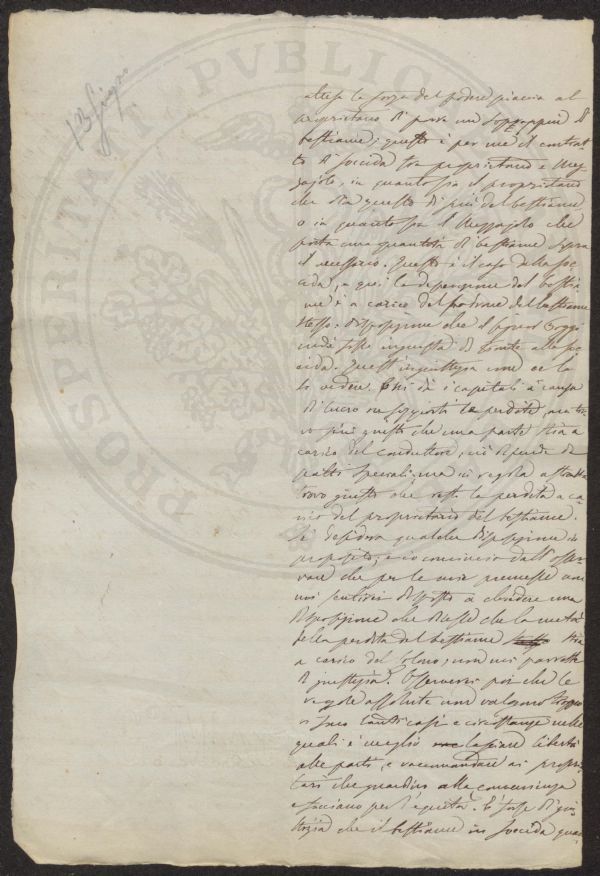 13 Giugno
PROSPERITAS PUBLICA
attesa la forza del podere piaccia al
proprietario di porre un soprappiù di
bestiame; questo è per me il contrat-
to di soccida tra proprietario e Mez-
zajolo, in quanto sia il proprietario
che dia questo di più del bestiame
o in quanto sia il Mezzajolo che
porta una quantità di bestiame sopra
il necessario. Questo è il caso della soc-
cida, e qui la deperizione del bestia-
me è a carico del padrone del bestiame
stesso. disposizione che il Signor
fosse ingiusta di fronte alla soc-
cida. Quest'ingiustizia non ce la
so vedere. Chi dà i capitali a causa
di lucro ne sopporti le perdite, ma tro-
vo più giusto che una parte stia a
carico del conduttore, ciò dipende da
patti speciali; ma in regola astratta
trovo giusto che resti la perdita a ca-
rico del proprietario del bestiame.
Si desidera qualche disposizione in
proposito, e io comincio dall'osser-
vare che per le mie premesse non
mi sentirei disposto a chiedere una
disposizione che dicesse che la metà
della perdita del bestiame stia
a carico del Colono; non mi parrebbe
di giustizia. Osserverei poi che le
regole assolute non valgono troppo
vi sono tanti casi e circostanze nelle
quali è meglio lasciare libertà
alle parti, e raccomandare ai proprie-
tarj che guardino alla coscienza
e facciano per l'equità. È forse di giu-
stizia che il bestiame in soccida quan-